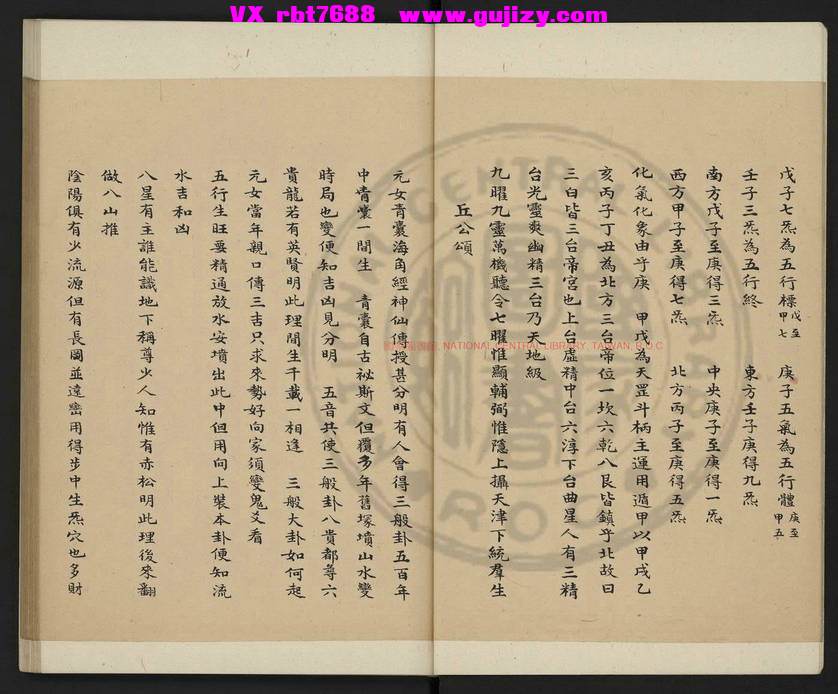 VX rbt7688 www.gujizy.com
戊子七炁為五行標戊至甲七 庚子五氣為五行體庚至甲五
壬子三炁為五行終 東方壬子庚得九炁
南方戊子至庚得三炁 中央庚子至庚得一炁
西方甲子至庚得七炁 北方丙子至庚得五炁
化氣化象由乎庚 甲戌為天罡斗柄主運用遁甲以甲戌乙
亥丙子丁丑為北方三台帝位一坎六乾八艮皆鎮乎北故曰
三白皆三台帝宮也上台虛精中台六淳下台曲星人有三精
台光靈爽幽精三台乃天地級
九曜九靈萬機聽令七曜惟顯輔弼惟隱上攝天津下統羣生
丘公頌
元女青囊海角經神仙傳授甚分明有人會得三般卦五百年
中青囊一間生 青囊自古祕斯文但覆多年舊塚墳山水變
時局也變便知吉凶見分明 五音共使三般卦八貴都尊六
貴龍若有英賢明此理間生千載一相逢 三般大卦如何起
元女當年親口傳三吉只求來勢好向家須變鬼爻看
五行生旺要精通放水安墳出此中但用向上裝本卦便知流
水吉和凶
八星有主誰能識地下稱尊少人知惟有赤松明此理後來翻
做八山推
陰陽俱有少流源但有長岡並遠巒用得步中生炁穴也多財
NATIONAL CENTRAL LIBRARY, TAIWAN, R.O.C